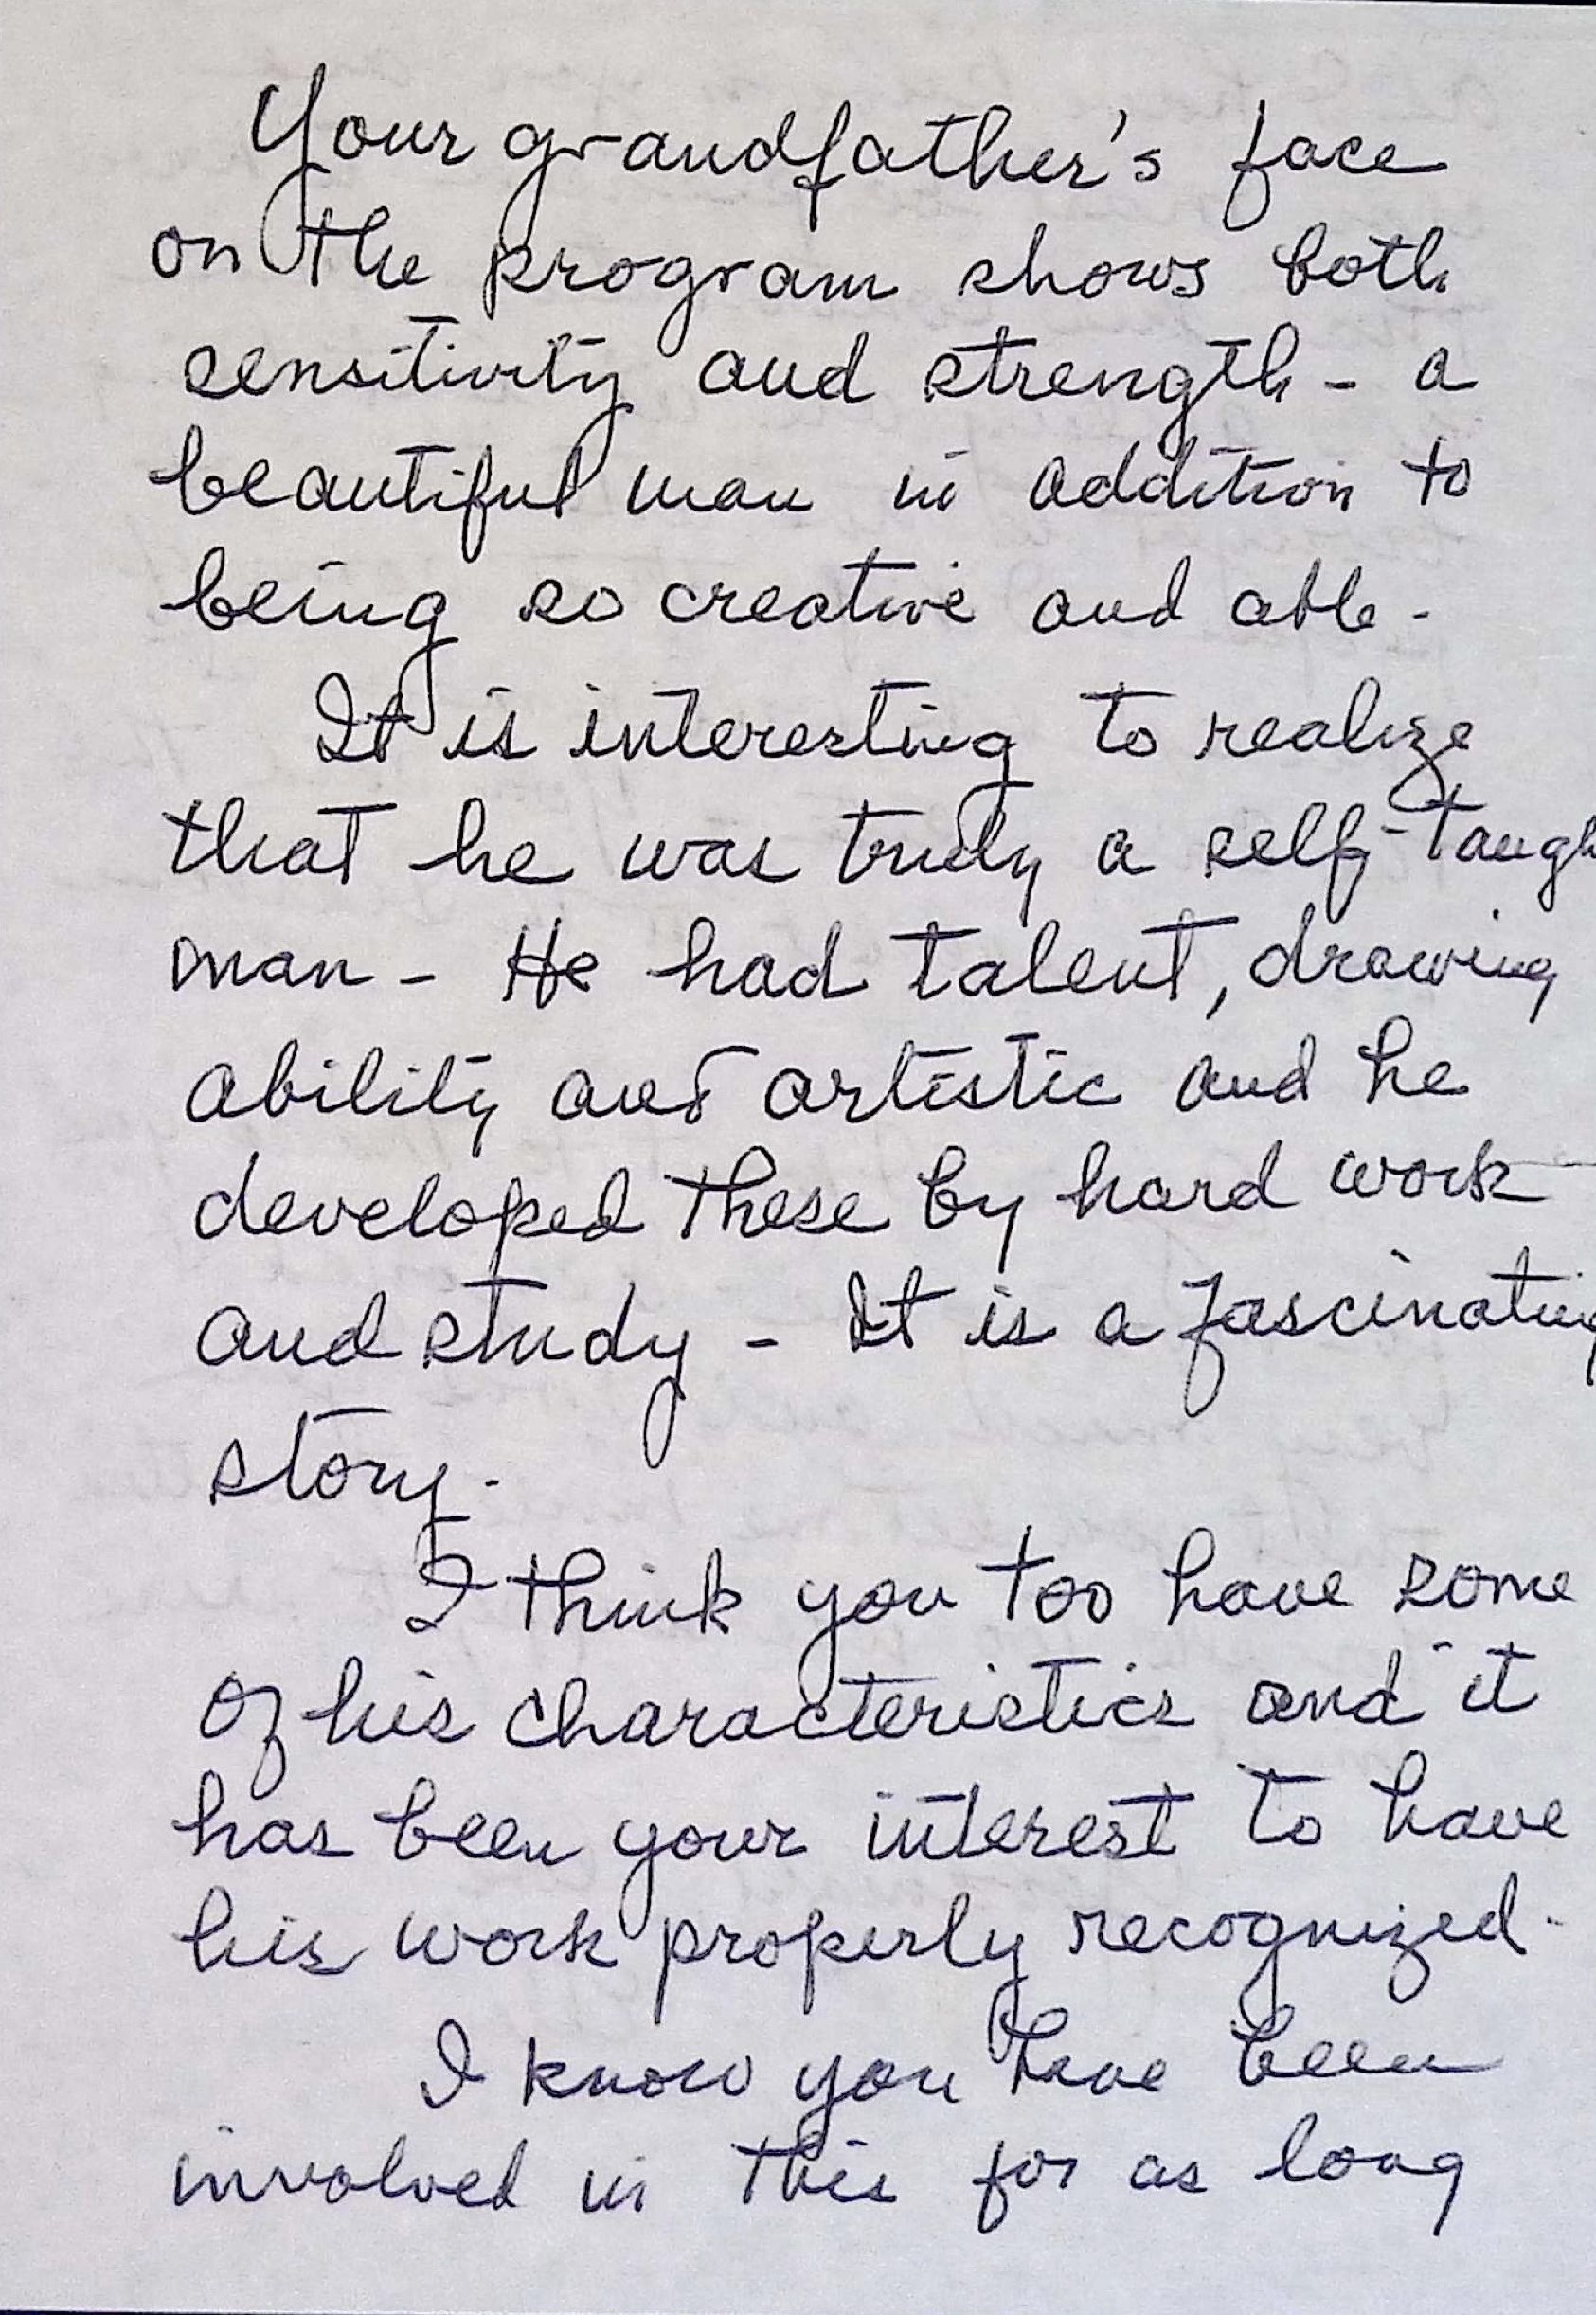 Your grandfather's face
on the program shows both
sensitivity and strength - a
beautiful man in addition to
being so creative and able.
It is interesting to realize
that he was truly a self-taugh
man - He had talent, drawing
ability and artistic and he
developed these by hard work
and study - It is a fascinating
story.
I think you too have some
of his characteristics and it
has been your interest to have
his work properly recognized.
I know you have been
involved in this for as long